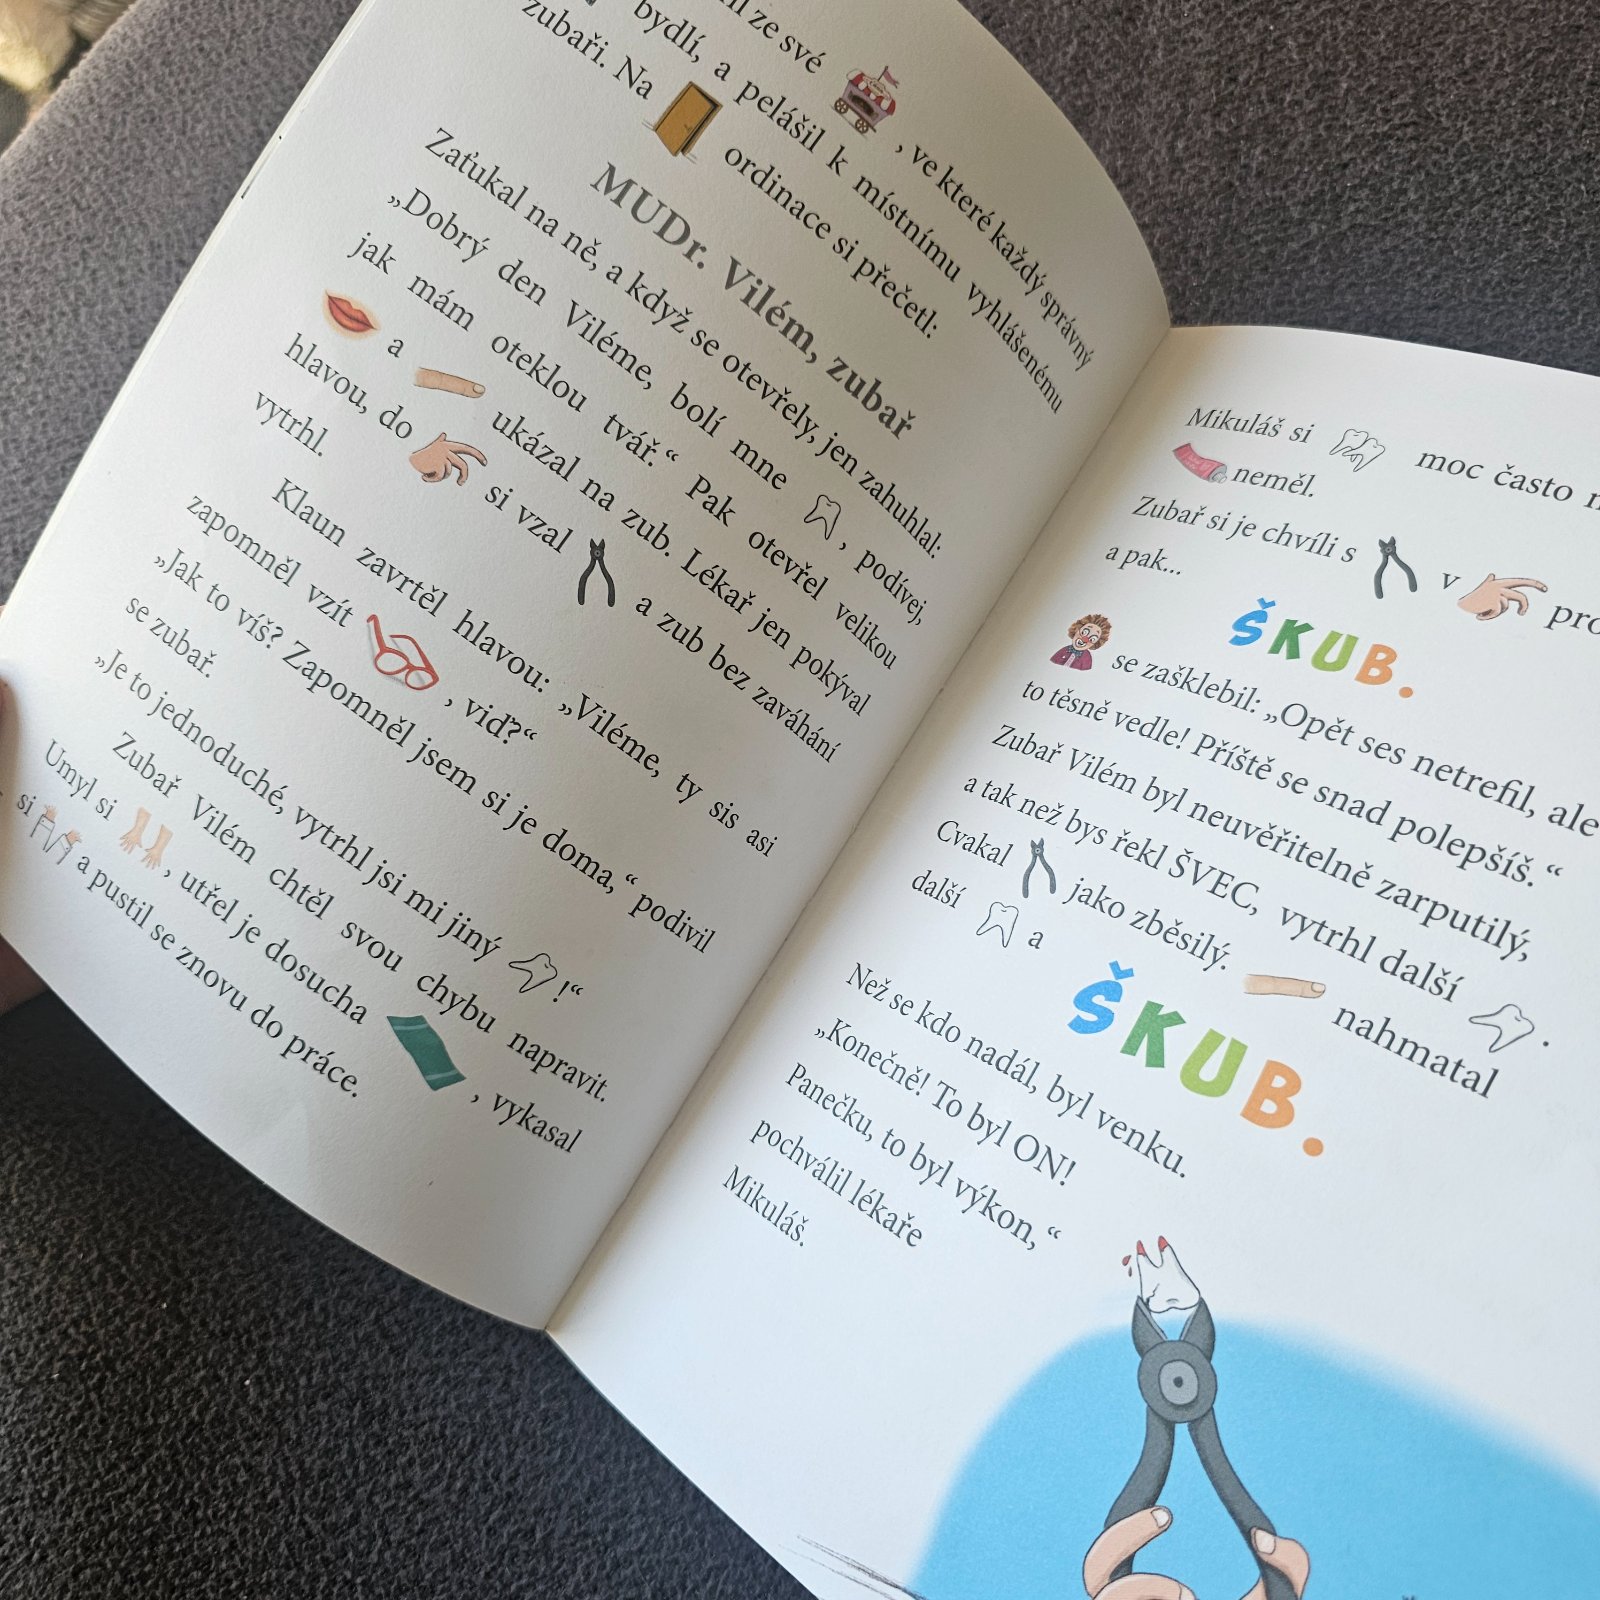 ze své , ve které každý správný
bydlí, a pelášil k místnímu vyhlášenému
zubaři. Na ordinace si přečetl:
MUDr. Vilém, zubař
Zaťukal na ně, a když se otevřely, jen zahuhlal:
„Dobrý den Viléme, bolí mne , podívej,
jak mám oteklou tvář.“ Pak otevřel velikou
a ukázal na zub. Lékař jen pokýval
hlavou, do si vzal a zub bez zaváhání
vytrhl.
Klaun zavrtěl hlavou: „Viléme, ty sis asi
zapomněl vzít , viď?“
„Jak to víš? Zapomněl jsem si je doma,“ podivil
se zubař.
„Je to jednoduché, vytrhl jsi mi jiný !“
Zubař Vilém chtěl svou chybu napravit.
Umyl si , utřel je dosucha , vykasal
si a pustil se znovu do práce.
Mikuláš si moc často
neměl.
Zubař si je chvíli s v
a pak...
ŠKUB.
se zašklebil: „Opět ses netrefil, ale
to těsně vedle! Příště se snad polepšíš.“
Zubař Vilém byl neuvěřitelně zarputilý,
a tak než bys řekl ŠVEC, vytrhl další .
Cvakal jako zběsilý. nahmatal
další a
ŠKUB.
Než se kdo nadál, byl venku.
„Konečně! To byl ON!
Panečku, to byl výkon,“
pochválil lékaře
Mikuláš.